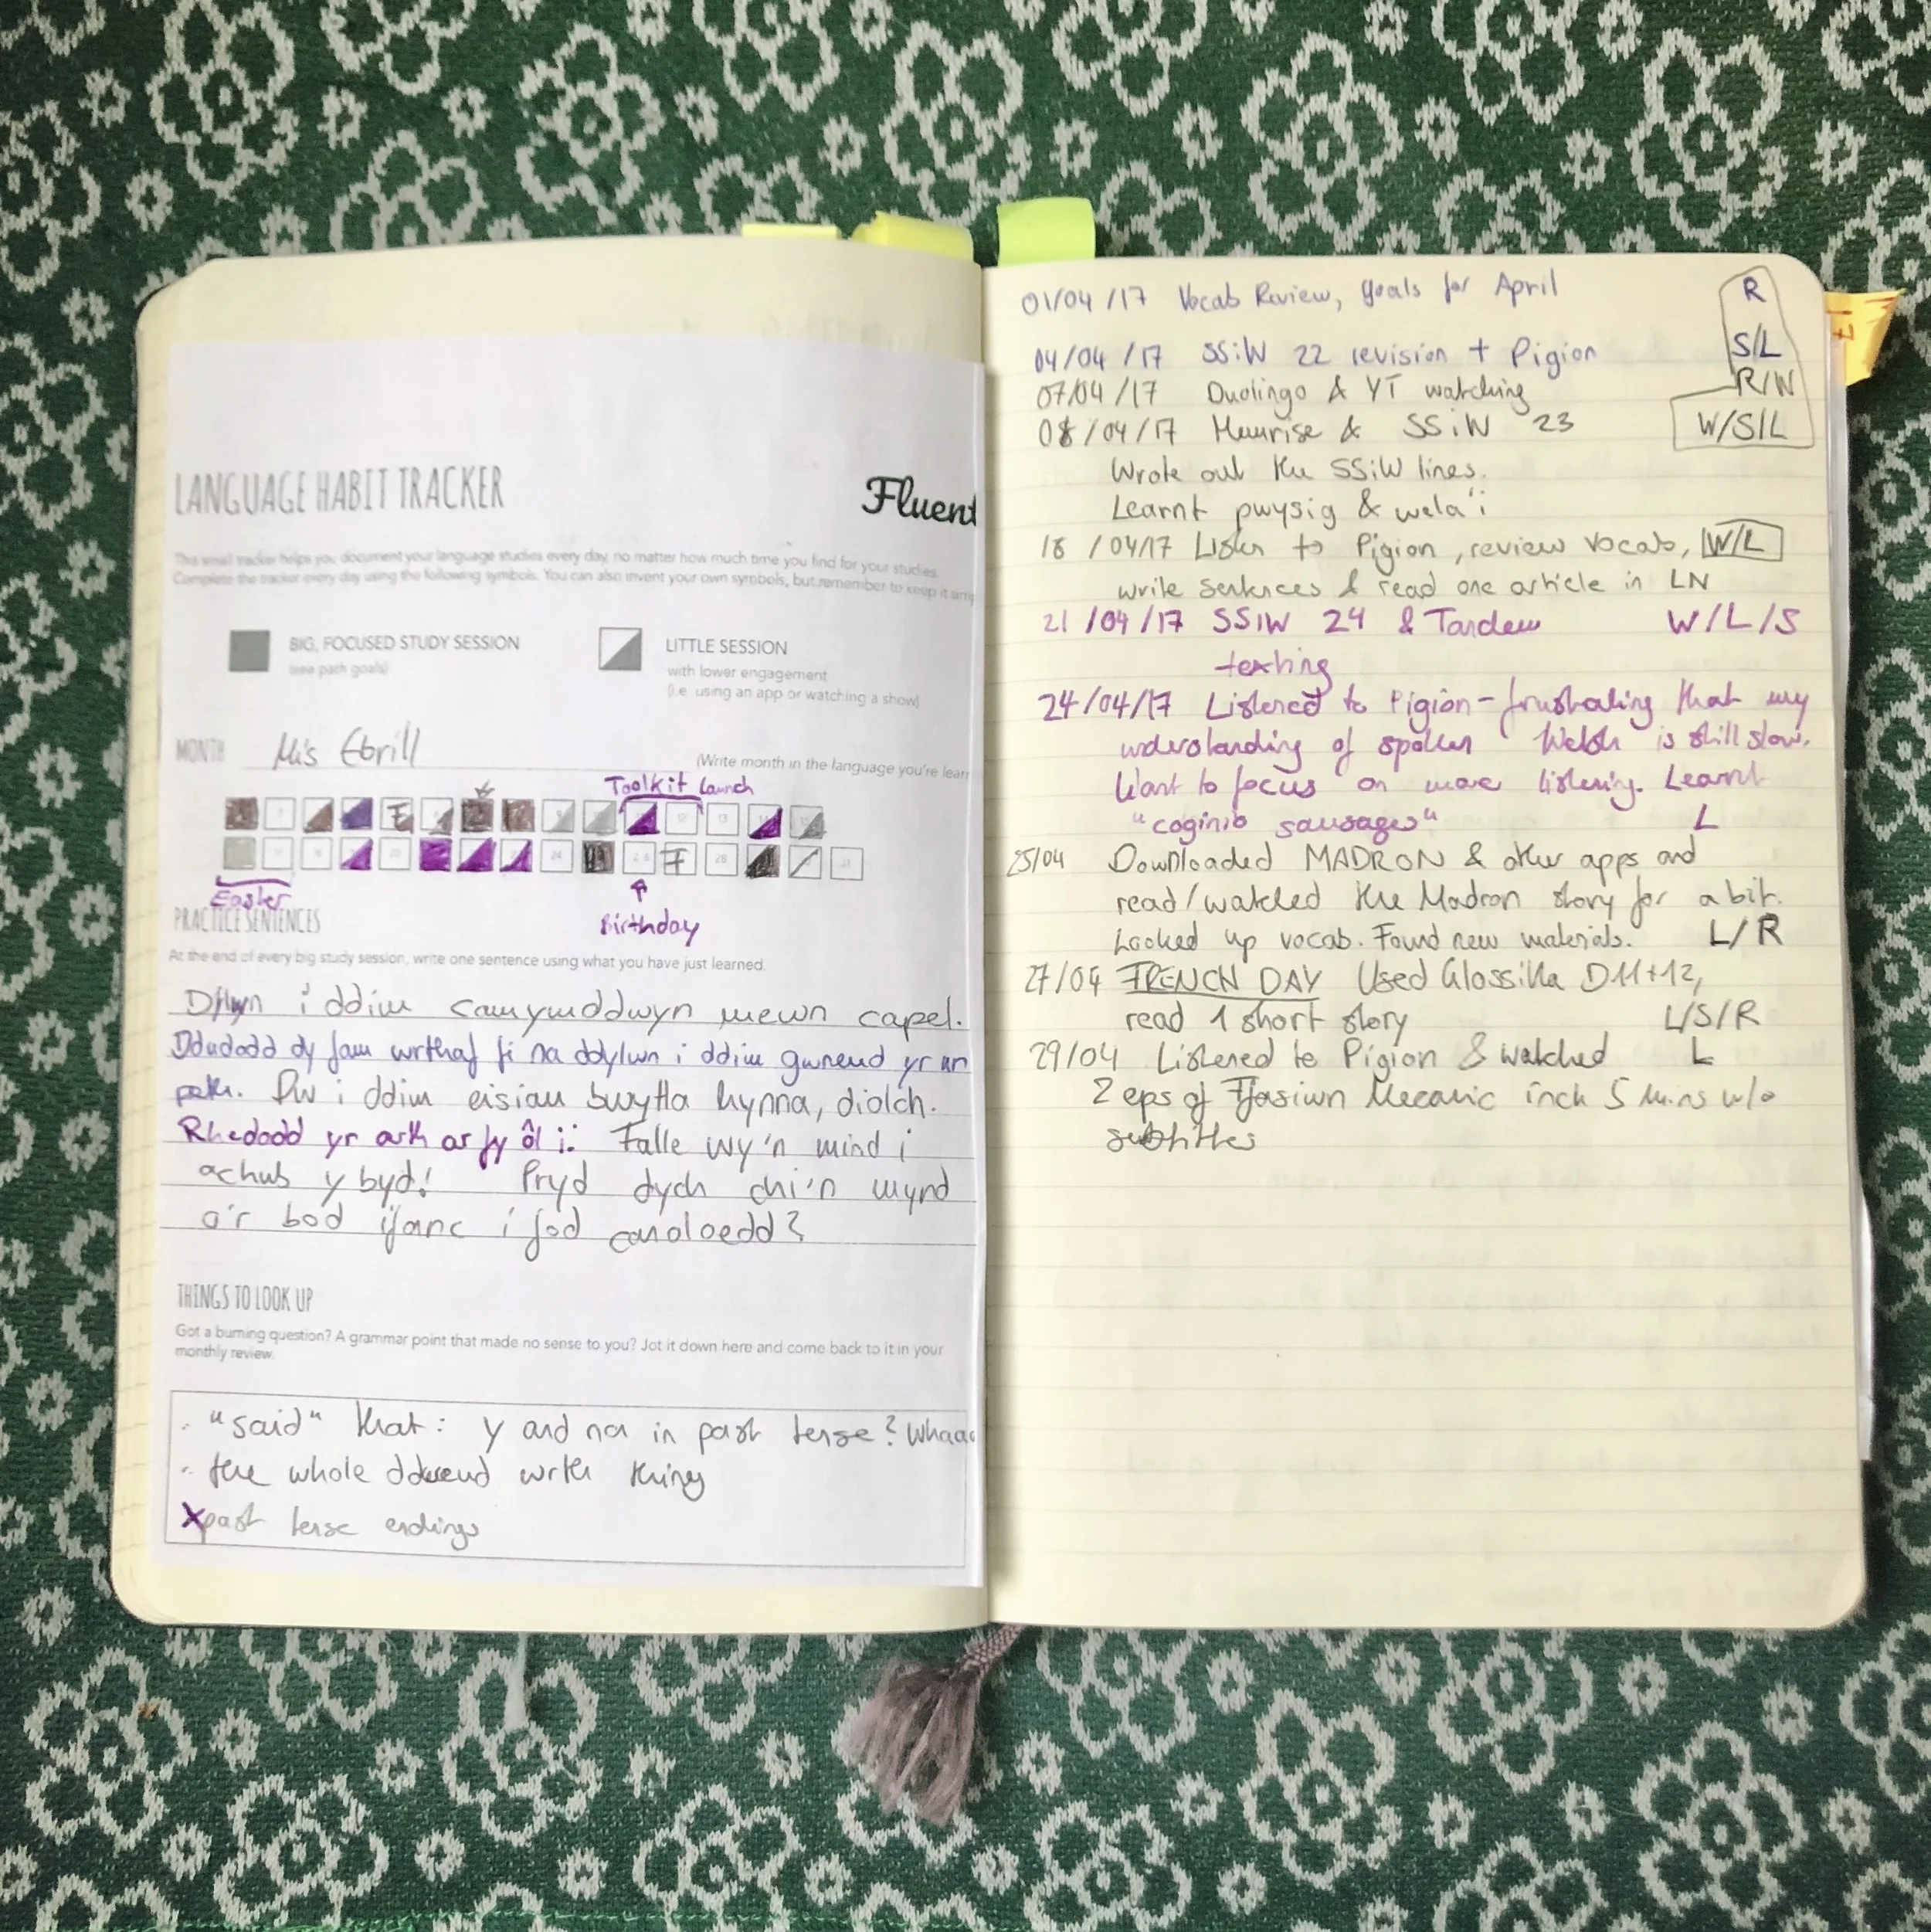 LANGUAGE HABIT TRACKER
Fluent
This small tracker helps you document your language studies every day, no matter how much time you find for your studies.
Complete the tracker every day using the following symbols. You can also invent your own symbols, but remember to keep it
BIG, FOCUSED STUDY SESSION
(see path goals)
LITTLE SESSION
with lower engagement
(i.e. using an app or watching a show)
MONTH Mis Ebrill
(Write month in the language you're lear
Toolkit Launch
F
12 13
24 F 28 31
Easter
Birthday
PRACTICE SENTENCES
At the end of every big study session, write one sentence using what you have just learned.
i ddim camymddwyn mewn capel.
Ddudodd dy fam wrthaf fi na ddylwn i ddim gwneud yr un
peth. Dw i ddim eisiau bwytta hynna, diolch.
Rhedodd yr arth ar fy ôl i. Falle wy'n mind i
achub y byd! Pryd dych chi'n mynd
o'r bod ifanc i fod canoloedd?
THINGS TO LOOK UP
Got a burning question? A grammar point that made no sense to you? Jot it down here and come back to it in your
monthly review.
"said" that: y and na in past tense? Whaa
the whole wrth thing
X past tense endings
01/04/17 Vocab Review, goals for April R
04/04/17 SSiW 22 revision + Pigion S/L
07/04/17 Duolingo & YT watching R/W
08/04/17 Memrise & SSiW 23 W/S/L
Wrote out the SSiW lines.
Learnt pwysig & wela'i
18/04/17 Listen to Pigion, review vocab, W/L
write sentences & read one article in LN
21/04/17 SSiW 24 & Tandem W/L/S
texting
24/04/17 Listened to Pigion - frustrating that my
understanding of spoken Welsh is still slow.
Want to focus on more listening. Learnt
"coginio sausages" L
25/04 Downloaded MADRON & other apps and
read/watched the Madron story for a bit.
Looked up vocab. Found new materials. L/R
27/04 FRENCH DAY Used Glossika D11+12,
read 1 short story L/S/R
29/04 Listened to Pigion & watched L
2 eps of Ffasiwn Mecanic incl. 5 mins w/o
subtitles